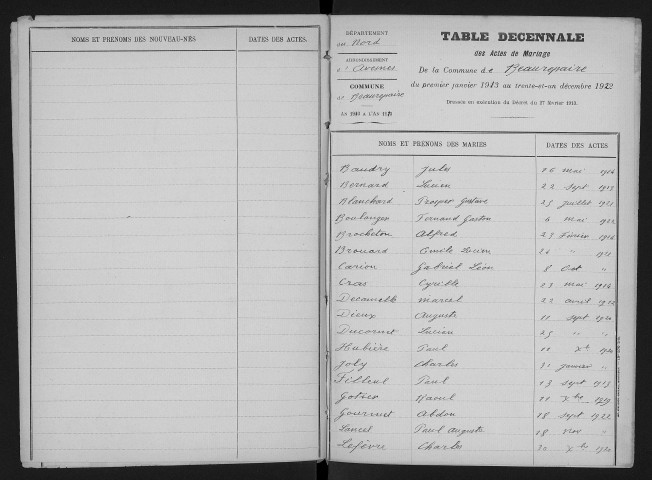 NOMS ET PRÉNOMS DES NOUVEAU-NÉS DATES DES ACTES.
DÉPARTEMENT
du Nord
ARRONDISSEMENT
d'Avesnes
COMMUNE
de Beaurepaire
TABLE DECENNALE
des Actes de Mariage
De la Commune de Beaurepaire
du premier janvier 1913 au trente-et-un décembre 1922
NOMS ET PRÉNOMS DES MARIÉS DATES DES ACTES
Baudry Jules 06 mai
Bernard Lucien 22 Sept
Blanchard Prosper Gustave 25 juillet
Boulanger Fernand Gaston 6 mai 1922
Brocheton Alfred 23 Février
Brouard Emile Lucien 26 "
Carion Gabriel Léon 8 Oct "
Cras Cyrille 23 mai
Decamelle Marcel 22 avril
Dieux Auguste 11 Sept
Ducornet Lucien 25 " "
Hubière Paul Xbre
Joly Charles 31 janvier "
Filleul Paul 13 Sept 1913
Raoul Xbre
Gourmet Abdon 18 Sept 1922
Lancel Paul Auguste 18 Nov "
Lefèvre Charles 30 Xbre